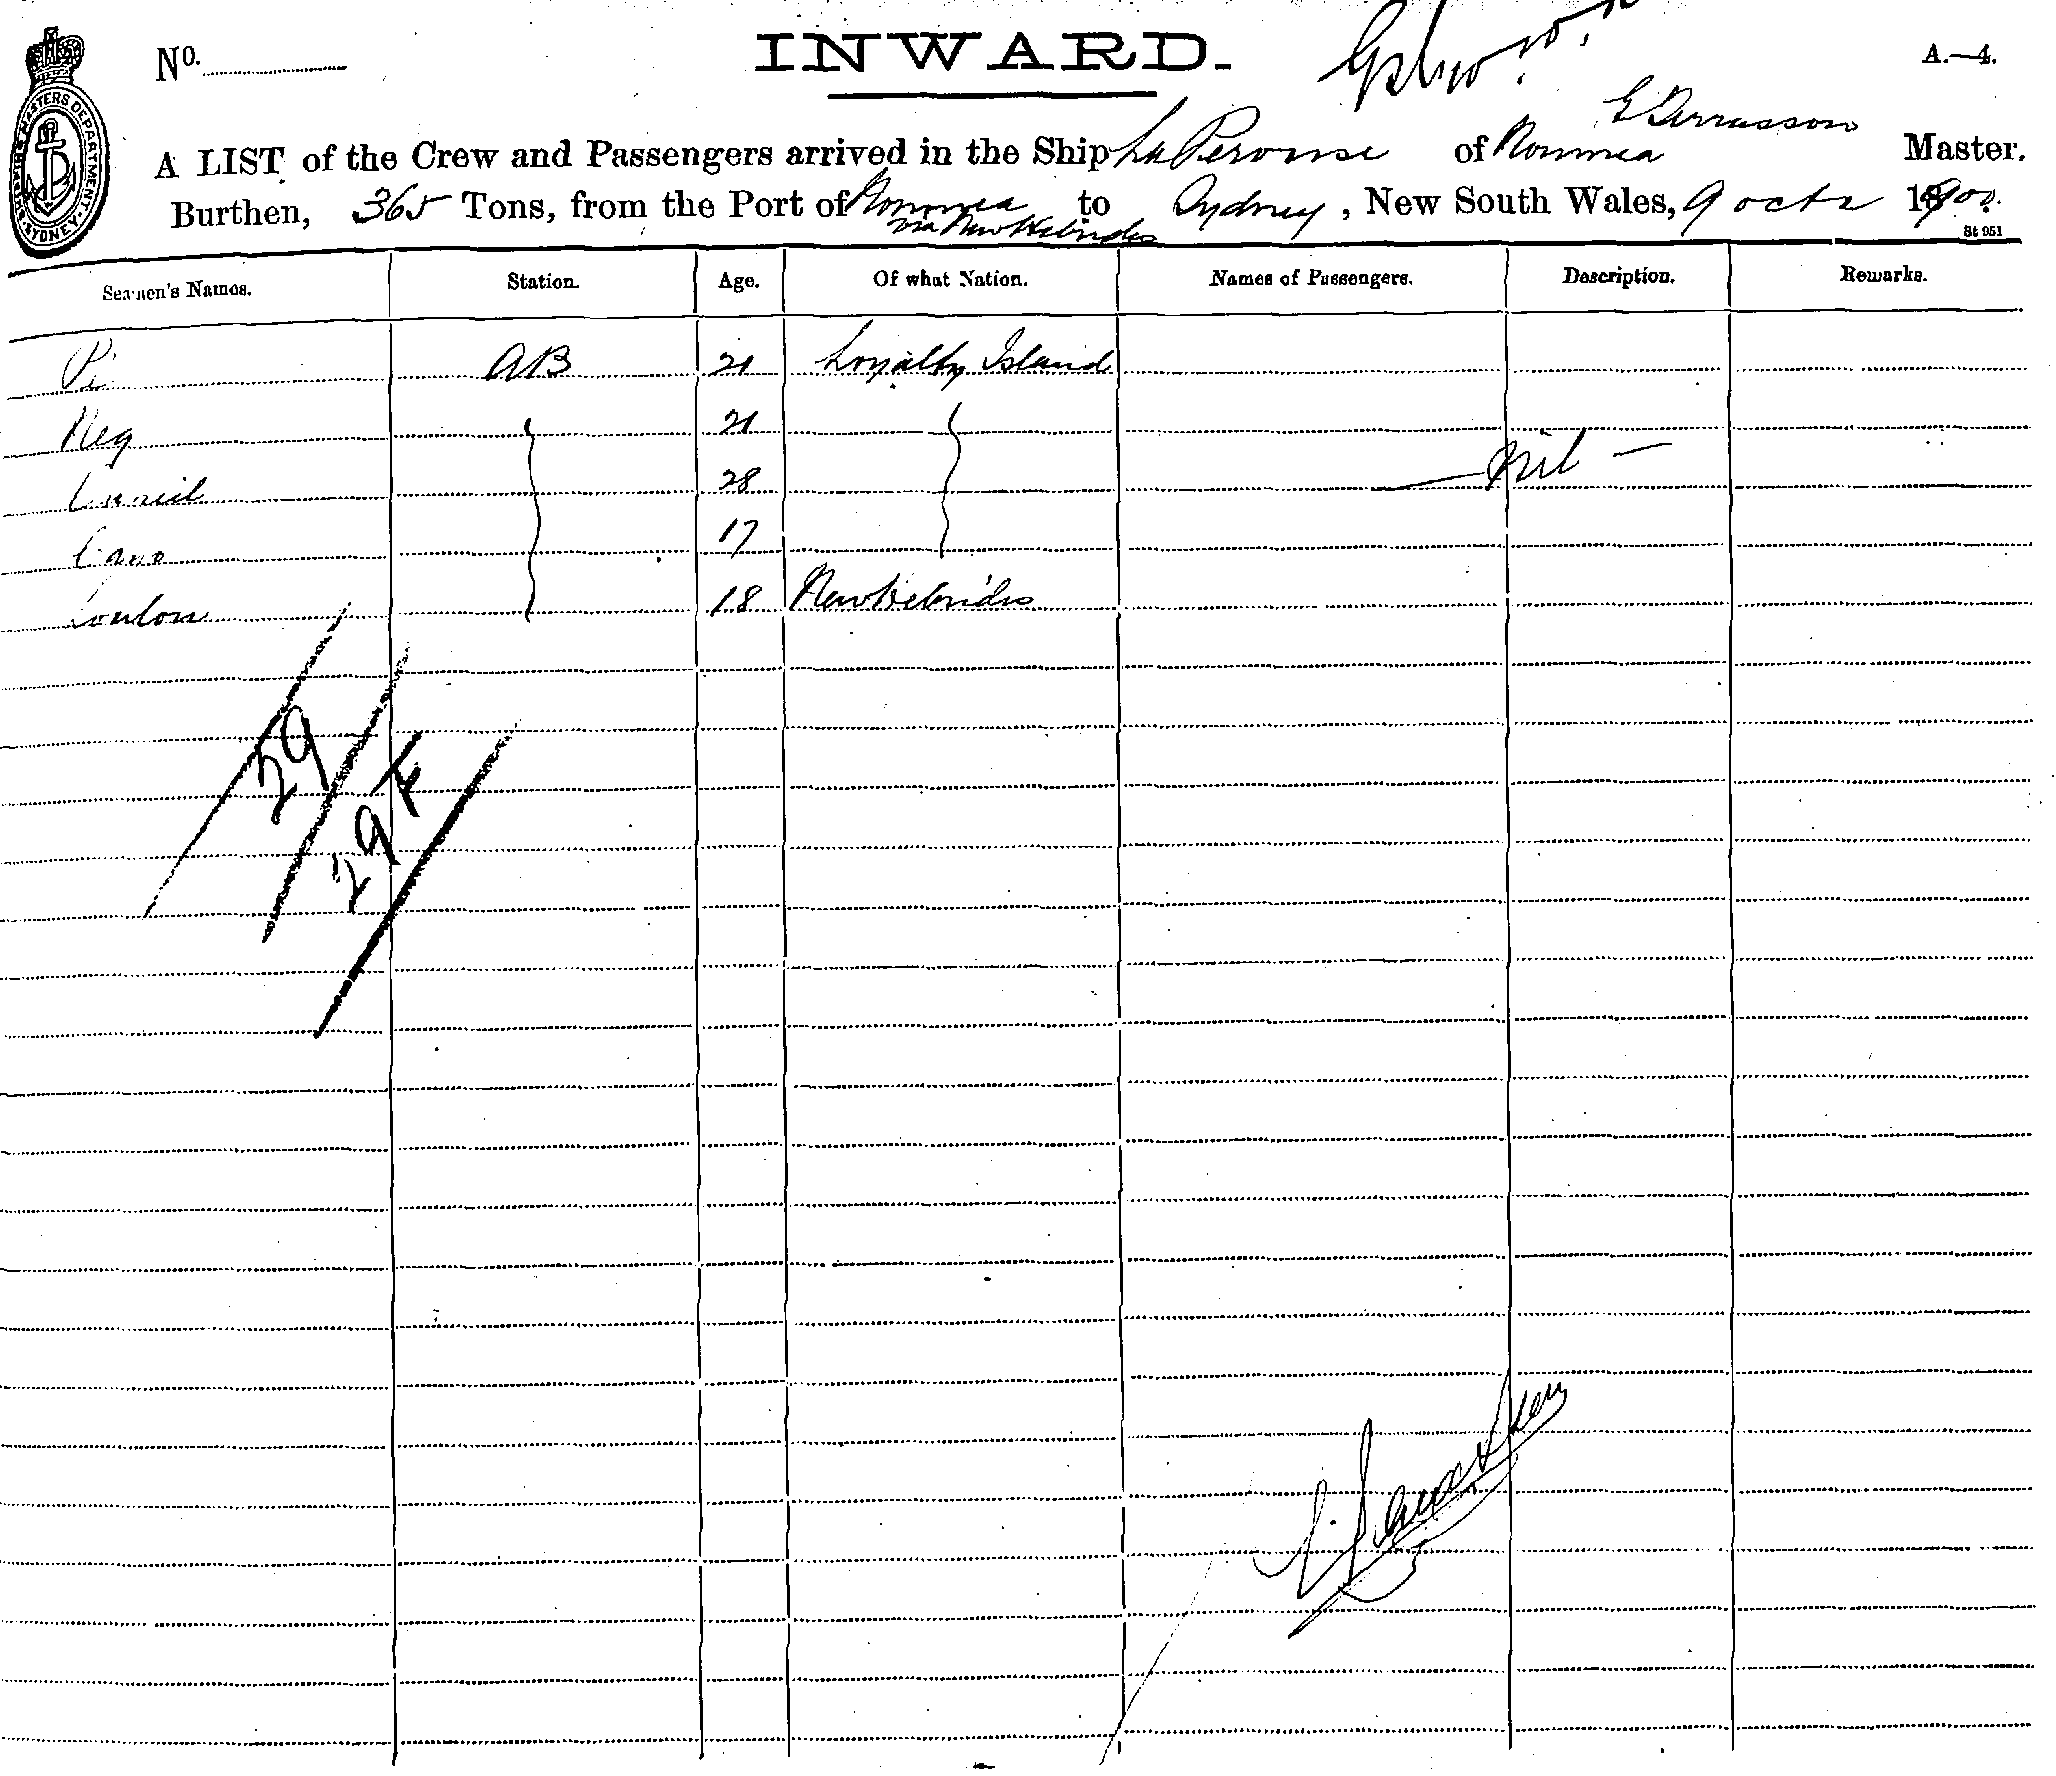 No. INWARD. A.—4.
SHIPPING MASTERS DEPARTMENT. SYDNEY.
E Terrasson
A LIST of the Crew and Passengers arrived in the Ship La Perouse of Noumea Master.
Burthen, 365 Tons, from the Port of Noumea to Sydney, New South Wales, 9 octr 1900.
via New Hebrides
St 951
Seamen's Names. Station. Age. Of what Nation. Names of Passengers. Description. Remarks.
Pi AB 21 Loyalty Island
Neg 21
28 — Nil —
17
Toulon 18 New Hebrides
29
29 F